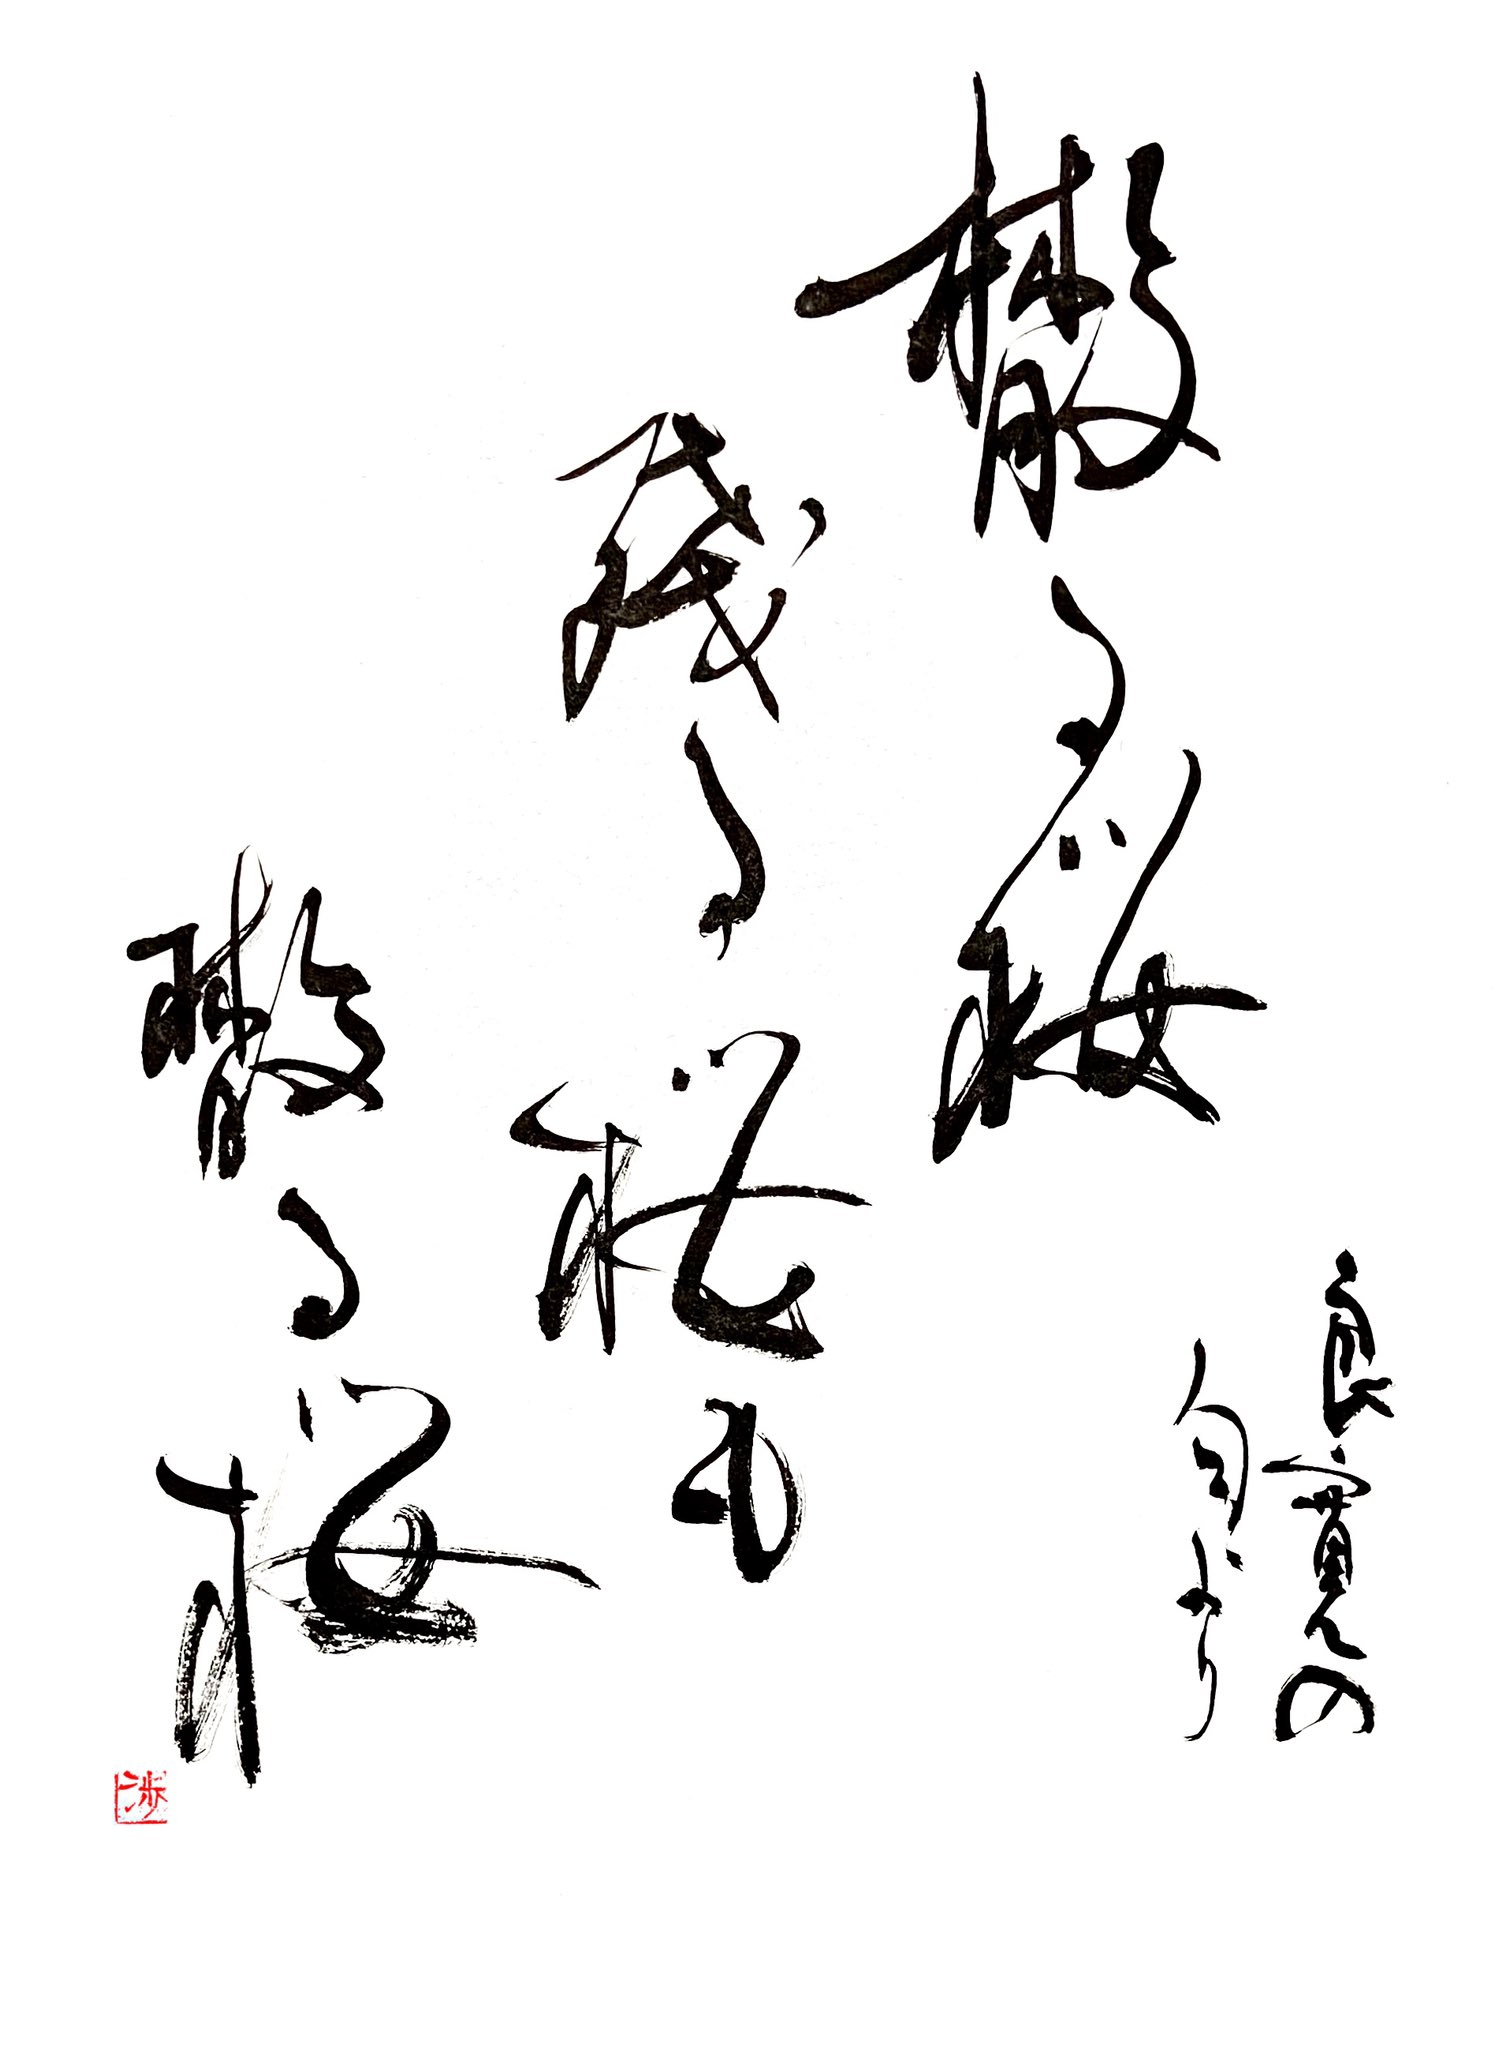 良寛の
句より
散る桜
残る桜も
散る桜
渉